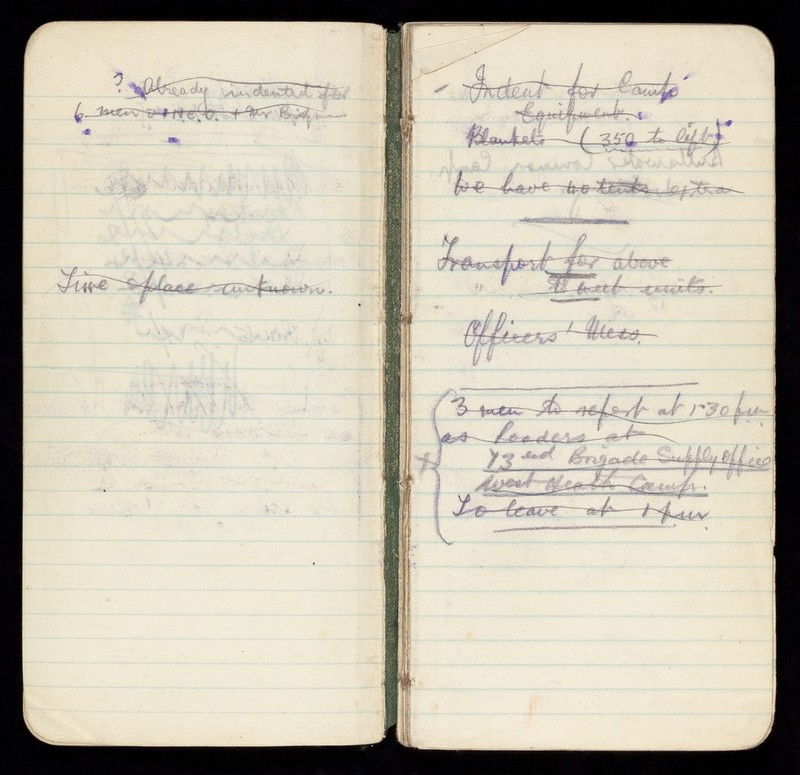 ? Already indented for
6 men or N.C.O. + Mr
Time & place unknown.
- Indent for Camp
Equipment.
Blankets (350 to lift)
We have 40 tents extra
Transport for above
" units.
Officers' Mess.
3 men to report at 1.30 pm
as loaders at
73rd Brigade Supply Office
West Heath Camp.
To leave at 1 pm